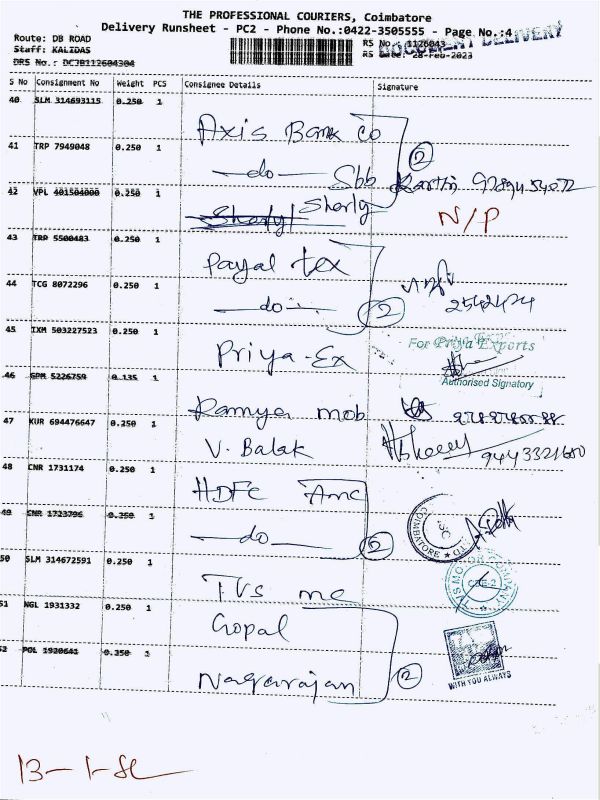 THE PROFESSIONAL COURIERS, Coimbatore
Delivery Runsheet - PC2 - Phone No.:0422-3505555 - Page No.:4
DOCUMENT DELIVERY
Route: DB ROAD
RS No. : 1126043
Staff: KALIDAS
RS Date: 28-Feb-2023
DRS No.: DCJB112604304
S No Consignment No Weight PCS Consignee Details Signature
40 SLM 314693115 0.250 1
Axis Bank Co
41 TRP 7949048 0.250 1
—do— Sbb 2
42 VPL 401504000 0.250 1
Sherly Sherly N/P
43 TRP 5500483 0.250 1
Payal tex
44 TCG 8072296 0.250 1
—do— 2 2542424
45 IXM 503227523 0.250 1
Priya-Ex For Priya Exports
Authorised Signatory
46 GPM 5226759 0.135 1
Ramya mob
47 KUR 694476647 0.250 1
V. Balak 9443321680
48 CNR 1731174 0.250 1
HDFC Amc
COIMBATORE
49 CNR 1723796 0.250 1
—do— 2
50 SLM 314672591 0.250 1
TVS mc TVS MOTOR COMPANY
CBE-2
51 NGL 1931332 0.250 1
Gopal
52 POL 1920641 0.250 1
Nagarajan 2
WITH YOU ALWAYS